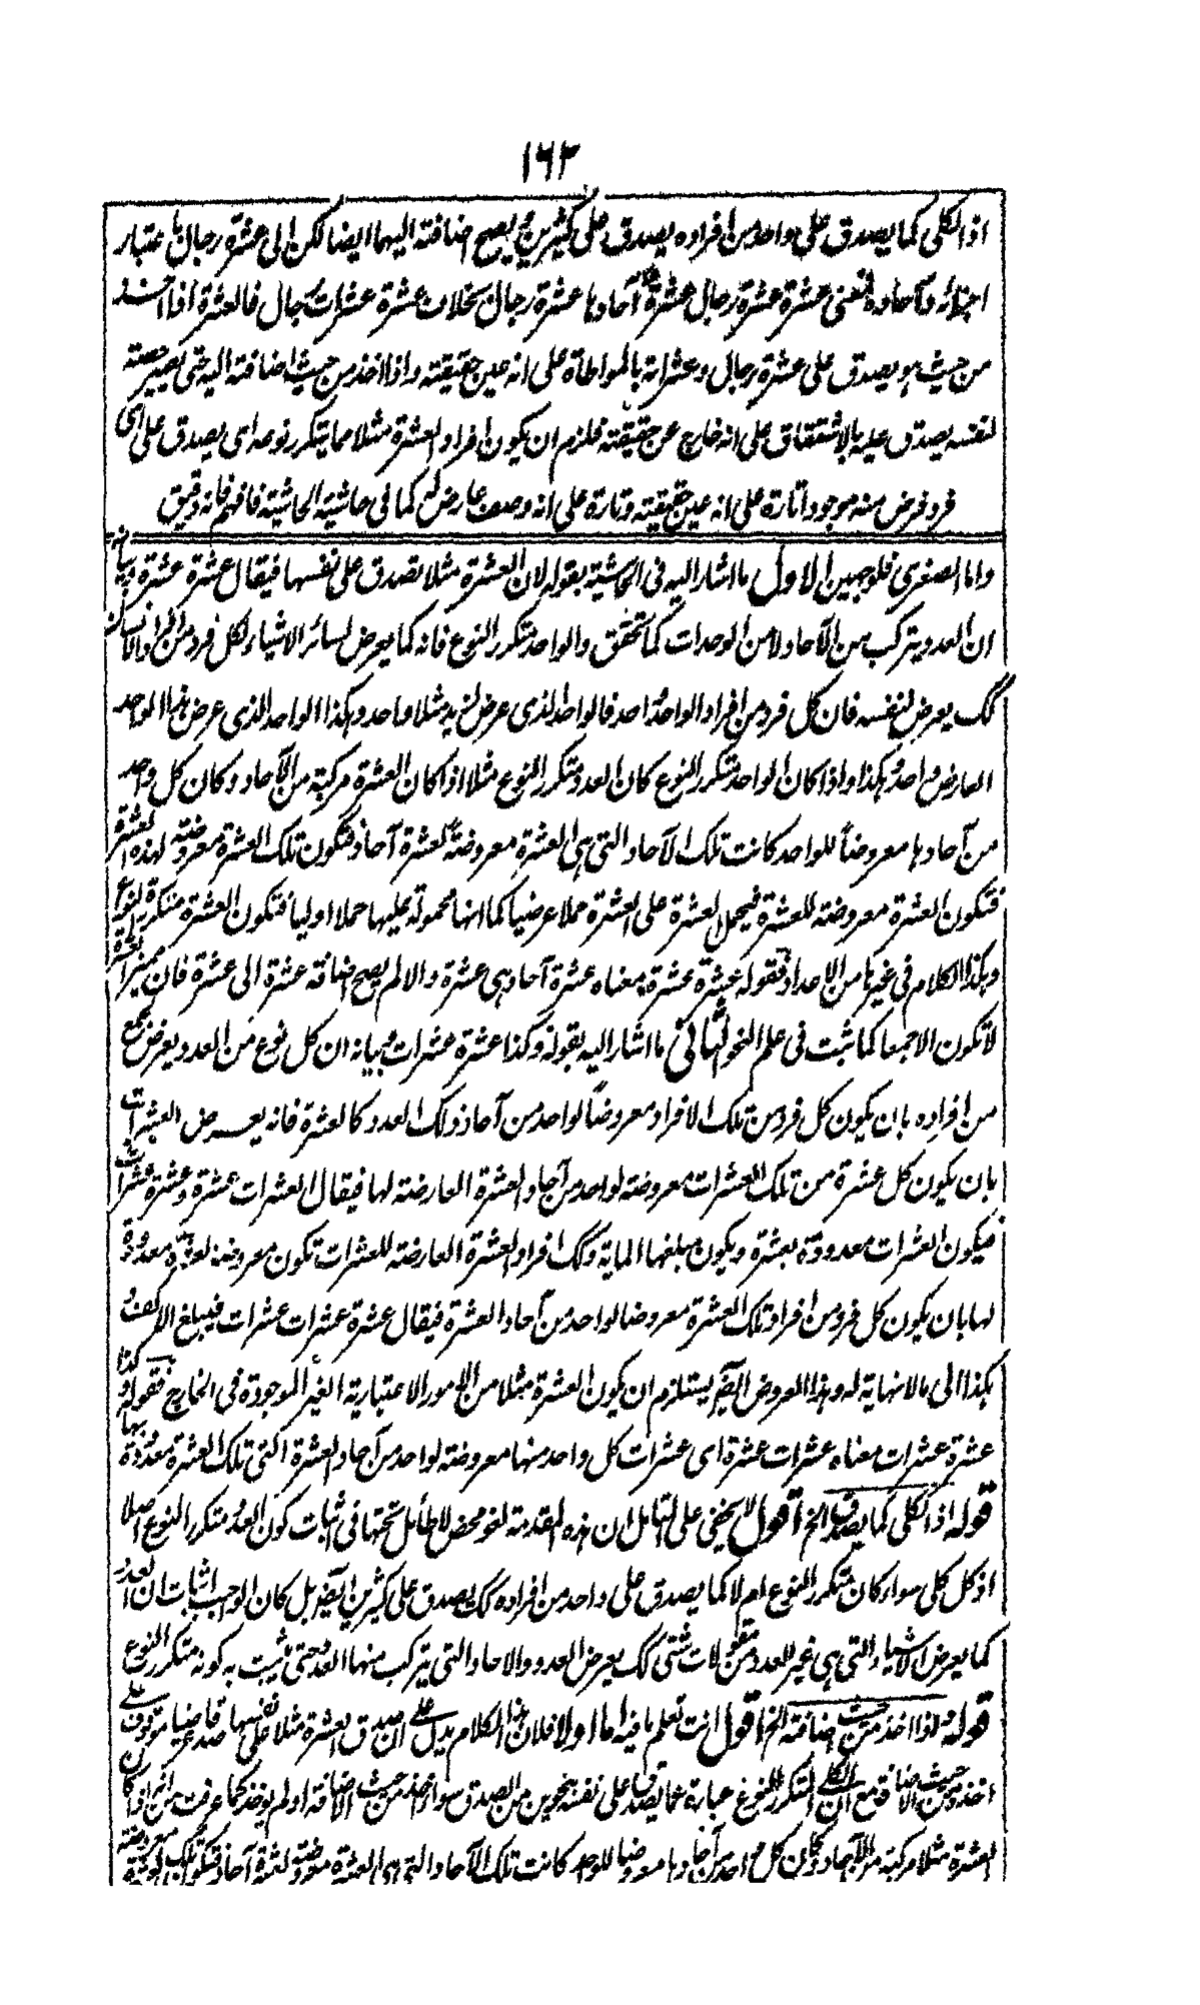 ١٦٢
اذ الكلى كما يصدق على واحد من افراده يصدق على كثيرين ويصح اضافته اليهما ايضا لكن الى عشرة رجال باعتبار
اجزائه وآحاده فمعنى عشرة عشرة رجال عشرة آحادها عشرة رجال بخلاف عشرة عشرات رجال فالعشرة اذا اخذ
من حيث هو يصدق على عشرة رجال وعشراته بالمواطاة على انه عين حقيقته واذا اخذ من حيث اضافته اليه حتى يصير حصته
لنفسه يصدق عليه بالاشتقاق على انه خارج عن حقيقته فلزم ان يكون افراد العشرة مثلا مما يتكرر نوعه اى يصدق على اى
فرد فرض منه موجودا تارة على انه عين حقيقته وتارة على انه وصف عارض له كما فى حاشية الحاشية فافهم فانه دقيق
واما الصغرى فلوجهين الاول ما اشار اليه فى الحاشية بقوله لان العشرة مثلا تصدق على نفسها فيقال عشرة عشرة وبيانه
ان العدد يتركب من الآحاد لا من الوحدات كما تحقق والواحد متكرر النوع فانه كما يعرض لسائر الاشياء لكل فرد من افراد الانسان
كك يعرض لنفسه فان كل فرد من افراد الواحد واحد فالواحد الذى عرض لزيد مثلا واحد وهكذا الواحد الذى عرض بهذا الواحد
العارض واحد وهكذا واذا كان الواحد متكرر النوع كان العدد متكرر النوع مثلا اذا كان العشرة مركبة من الآحاد وكان كل واحد
من آحادها معروضاً للواحد كانت تلك الآحاد التى هى العشرة معروضة لعشرة آحاد فتكون تلك العشرة معروضة لهذه العشرة
فتكون العشرة معروضة للعشرة فيحمل العشرة على العشرة حملا عرضيا كما انها محمولة عليها حملا اوليا فتكون العشرة متكررة النوع
وهكذا الكلام فى غيرها من الاعداد فقوله عشرة عشرة معناه عشرة آحاد هى عشرة والا لم يصح اضافة عشرة الى عشرة فان مميز العشرة
لا تكون الا جمعا كما ثبت فى علم النحو الثانى ما اشار اليه بقوله وكذا عشرة عشرات وبيانه ان كل نوع من العدد يعرض لجميع
من افراده بان يكون كل فرد من تلك الافراد معروضاً لواحد من آحاد ذلك العدد كالعشرة فانه يعرض العشرات
بان يكون كل عشرة من تلك العشرات معروضة لواحد من آحاد العشرة العارضة لها فيقال العشرات عشرة وعشرة عشرات
فيكون العشرات معدودة بعشرة ويكون مبلغها الماية وكك افراد العشرة العارضة للعشرات تكون معروضة لعشرة معدودة
لها بان يكون كل فرد من افراد تلك العشرة معروضا لواحد من آحاد العشرة فيقال عشرة عشرات عشرات فيبلغ الالف و
هكذا الى مالا نهاية له وهذا العروض ايضا يستلزم ان يكون العشرة مثلا من الامور الاعتبارية الغير الموجودة فى الخارج فقوله وكذا
عشرة عشرات معناه عشرات عشرة اى عشرات كل واحد منها معروضة لواحد من آحاد العشرة التى تلك العشرة معدودة بها
قوله اذ الكلى كما يصدق الخ اقول لا يخفى على المتامل ان هذه المقدمة لغو محض لا طائل تحتها فى اثبات كون العدد متكرر النوع اصلا
اذ كل كلى سواء كان متكرر النوع ام لا كما يصدق على واحد من افراده كك يصدق على كثيرين ايضا بل كان الواجب اثبات ان العدد
كما يعرض الاشياء التى هى غير للعدد من مقولات شتى كك يعرض العدد والآحاد التى يتركب منها العدد حتى يثبت به كونه متكرر النوع
قوله واذا اخذ من حيث اضافته الخ اقول انت تعلم ما فيه اما اولا فلان هذا الكلام يدل على ان صدق العشرة مثلا على نفسها صدقا عرضيا موقوف على
اخذه من حيث الاضافة مع ان الكلى المتكرر النوع عبارة عما يصدق على نفسه بنحوين من الصدق سواء اخذ من حيث الاضافة او لم يؤخذ كما عرفت من انه اذا كان
العشرة مثلا مركبة من الآحاد وكان كل واحد من آحادها معروضا للواحد كانت تلك الآحاد التى هى العشرة معروضة لعشرة آحاد فتكون تلك العشرة معروضة